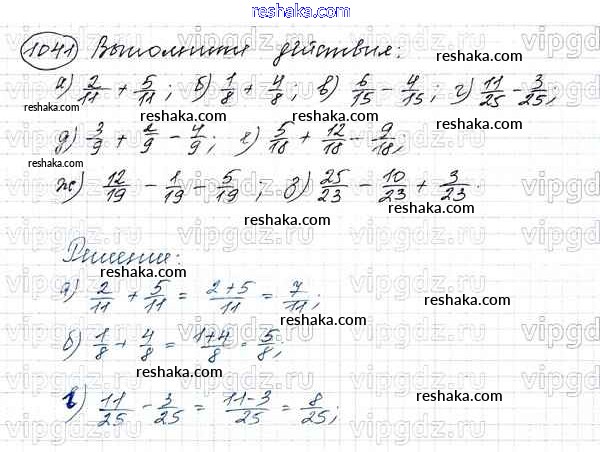 reshaka.com
1041 Выполните действия:
reshaka.com
а) 2/11 + 5/11; б) 1/8 + 4/8; в) 6/15 − 4/15; г) 11/25 − 3/25;
reshaka.com
reshaka.com
reshaka.com
д) 3/9 + 2/9 − 4/9; е) 5/18 + 12/18 − 9/18;
reshaka.com
reshaka.com
reshaka.com
ж) 12/19 − 1/19 − 5/19; з) 25/23 − 10/23 + 3/23.
reshaka.com
reshaka.com
Решение:
reshaka.com
а) 2/11 + 5/11 = 2+5/11 = 7/11;
reshaka.com
reshaka.com
б) 1/8 + 4/8 = 1+4/8 = 5/8;
reshaka.com
reshaka.com
в) 11/25 − 3/25 = 11−3/25 = 8/25;
reshaka.com
vipgdz.com